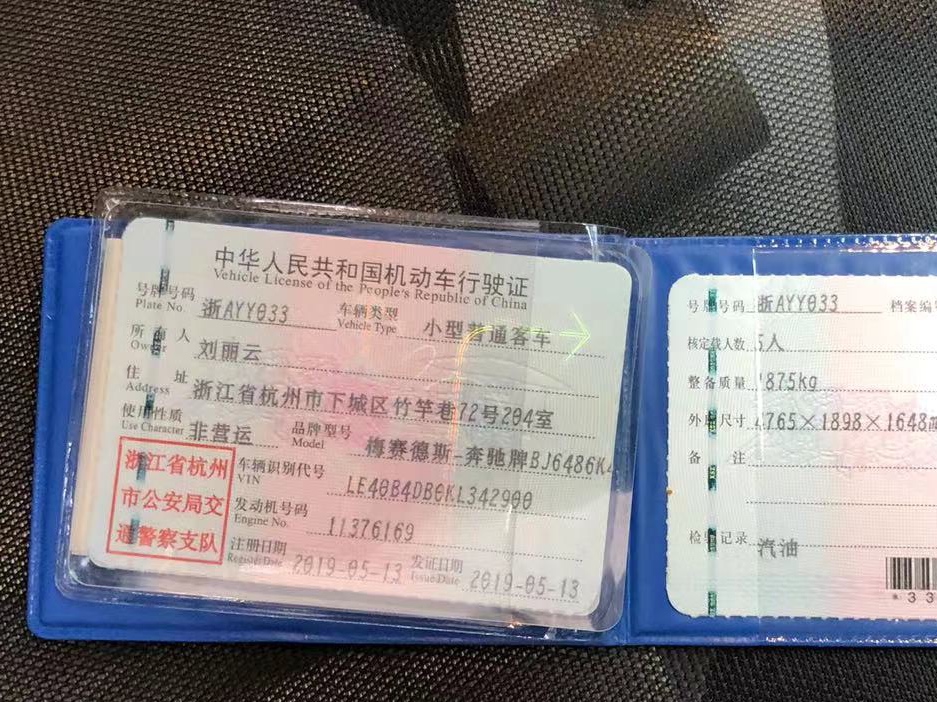 中华人民共和国机动车行驶证
Vehicle License of the People's Republic of China
号牌号码 浙AYY033 车辆类型 小型普通客车
Plate No. Vehicle Type
所有人 刘丽云
Owner
住址 浙江省杭州市下城区竹竿巷72号204室
Address
使用性质 非营运 品牌型号 梅赛德斯-奔驰牌BJ6486K
Use Character Model
浙江省杭州
市公安局交
通警察支队
车辆识别代号 LE40B4DB0KL342900
VIN
发动机号码 11376169
Engine No.
注册日期 2019-05-13 发证日期 2019-05-13
Register Date Issue Date
号牌号码 浙AYY033 档案编号
核定载人数 5人
整备质量 1875kg
外廓尺寸 4765×1898×1648
备注
检验记录 汽油
33